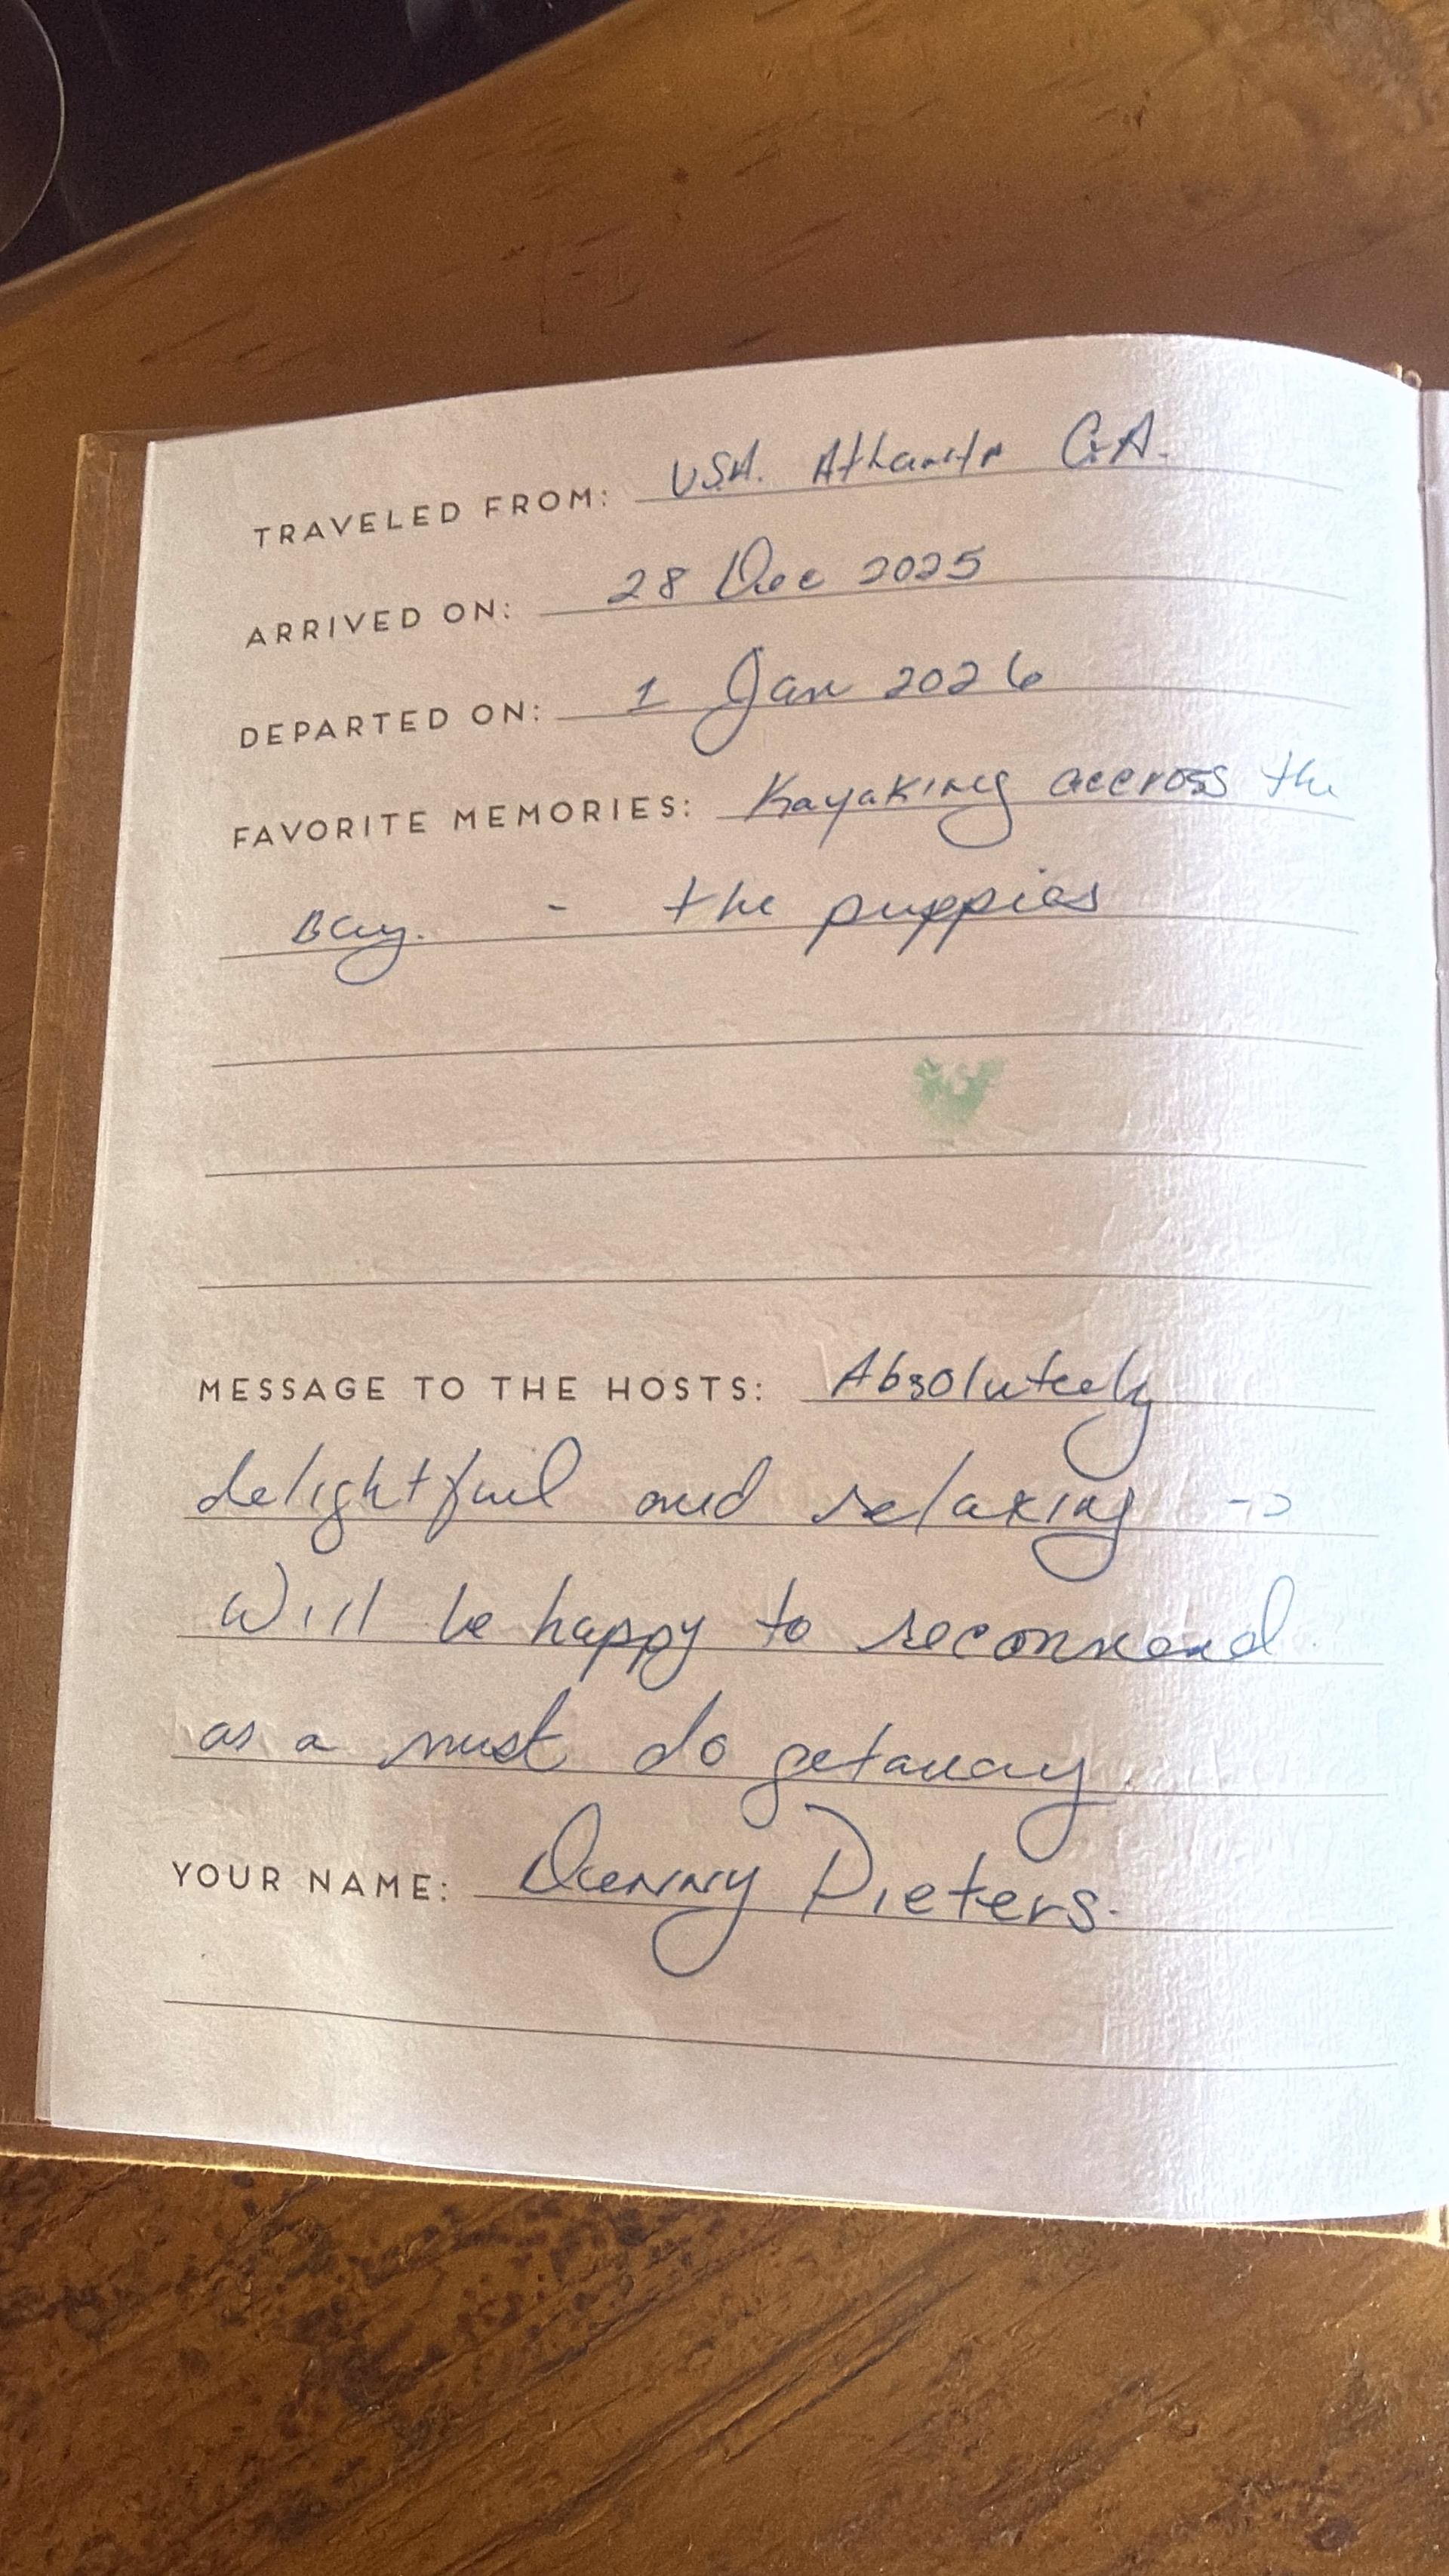 TRAVELED FROM: USA. Atlanta GA.
ARRIVED ON: 28 Dec 2025
DEPARTED ON: 1 Jan 2026
FAVORITE MEMORIES: Kayaking accross the
Bay. - the puppies
MESSAGE TO THE HOSTS: Absolutely
delightful and relaxing ->
Will be happy to recommend
as a must do getaway.
YOUR NAME: Danny Pieters.